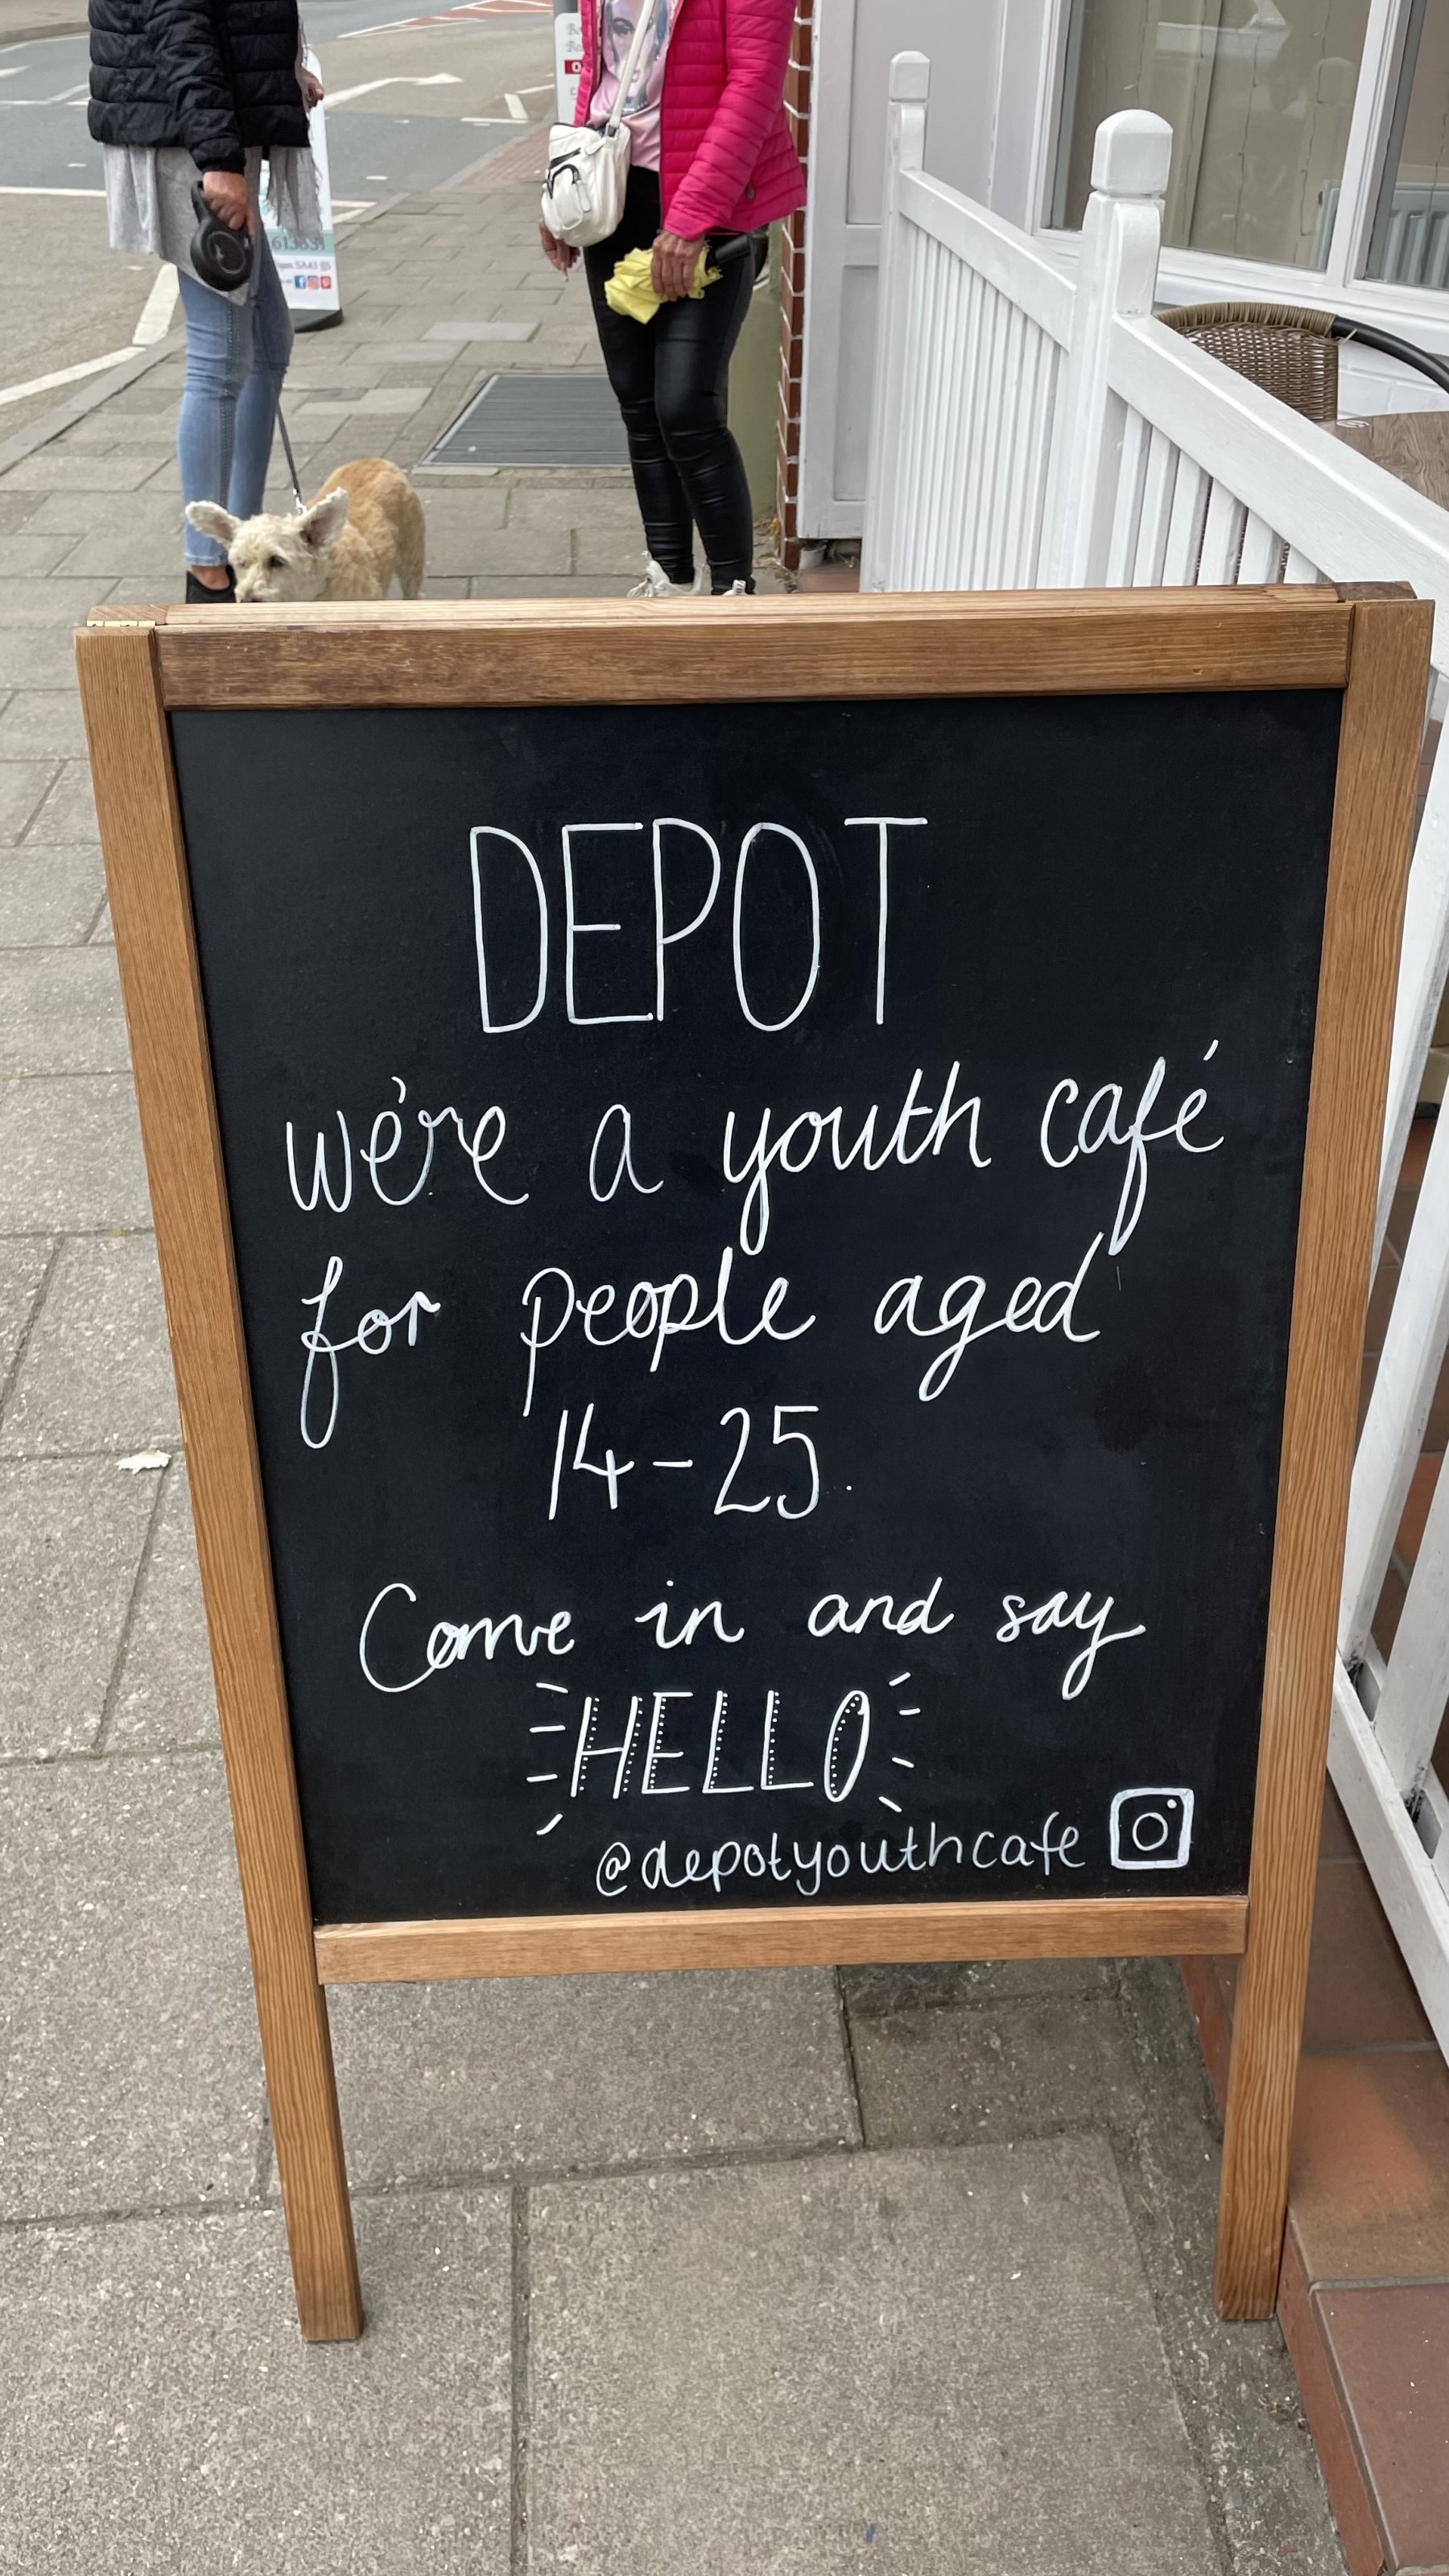 DEPOT
we're a youth café
for people aged
14-25.
Come in and say
HELLO
@depotyouthcafe
613631
SA43